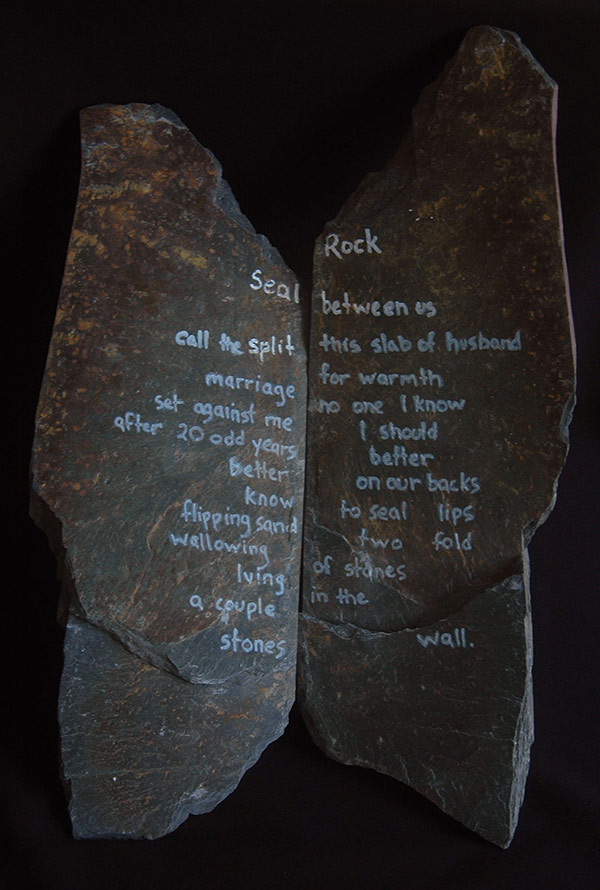 Seal Rock
between us
call the split this slab of husband
marriage for warmth
set against me no one I know
after 20 odd years I should
better better
know on our backs
flipping sand to seal lips
wallowing two fold
lying of stones
a couple in the
stones wall.